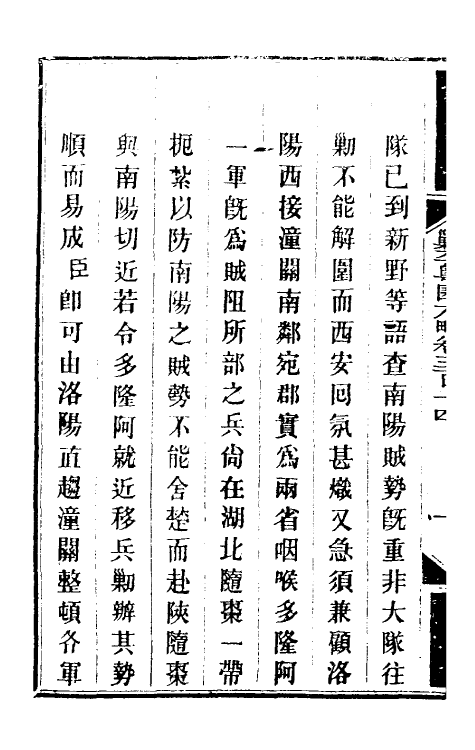 隊已到新野等語查南陽賊勢旣重非大隊往
勦不能解圍而西安囘氛甚熾又急須兼顧洛
陽西接潼關南鄰宛郡實爲兩省咽喉多隆阿
一軍旣爲賊阻所部之兵尙在湖北隨棗一帶
扼紮以防南陽之賊勢不能舍楚而赴陝隨棗
與南陽切近若令多隆阿就近移兵勦辦其勢
順而易成臣卽可由洛陽直趨潼關整頓各軍